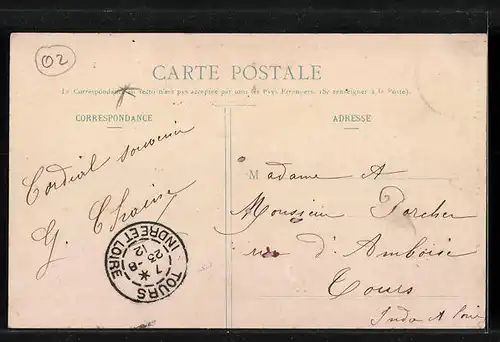 02
CARTE POSTALE
La Correspondance au recto n'est pas acceptée par tous les Pays Etrangers. (Se renseigner à la Poste).
CORRESPONDANCE
ADRESSE
Cordial souvenir
Madame A
Monsieur Porcher
rue d'Amboise
Tours
Indre & Loire
TOURS
INDRE ET LOIRE
7 - 8
23
12